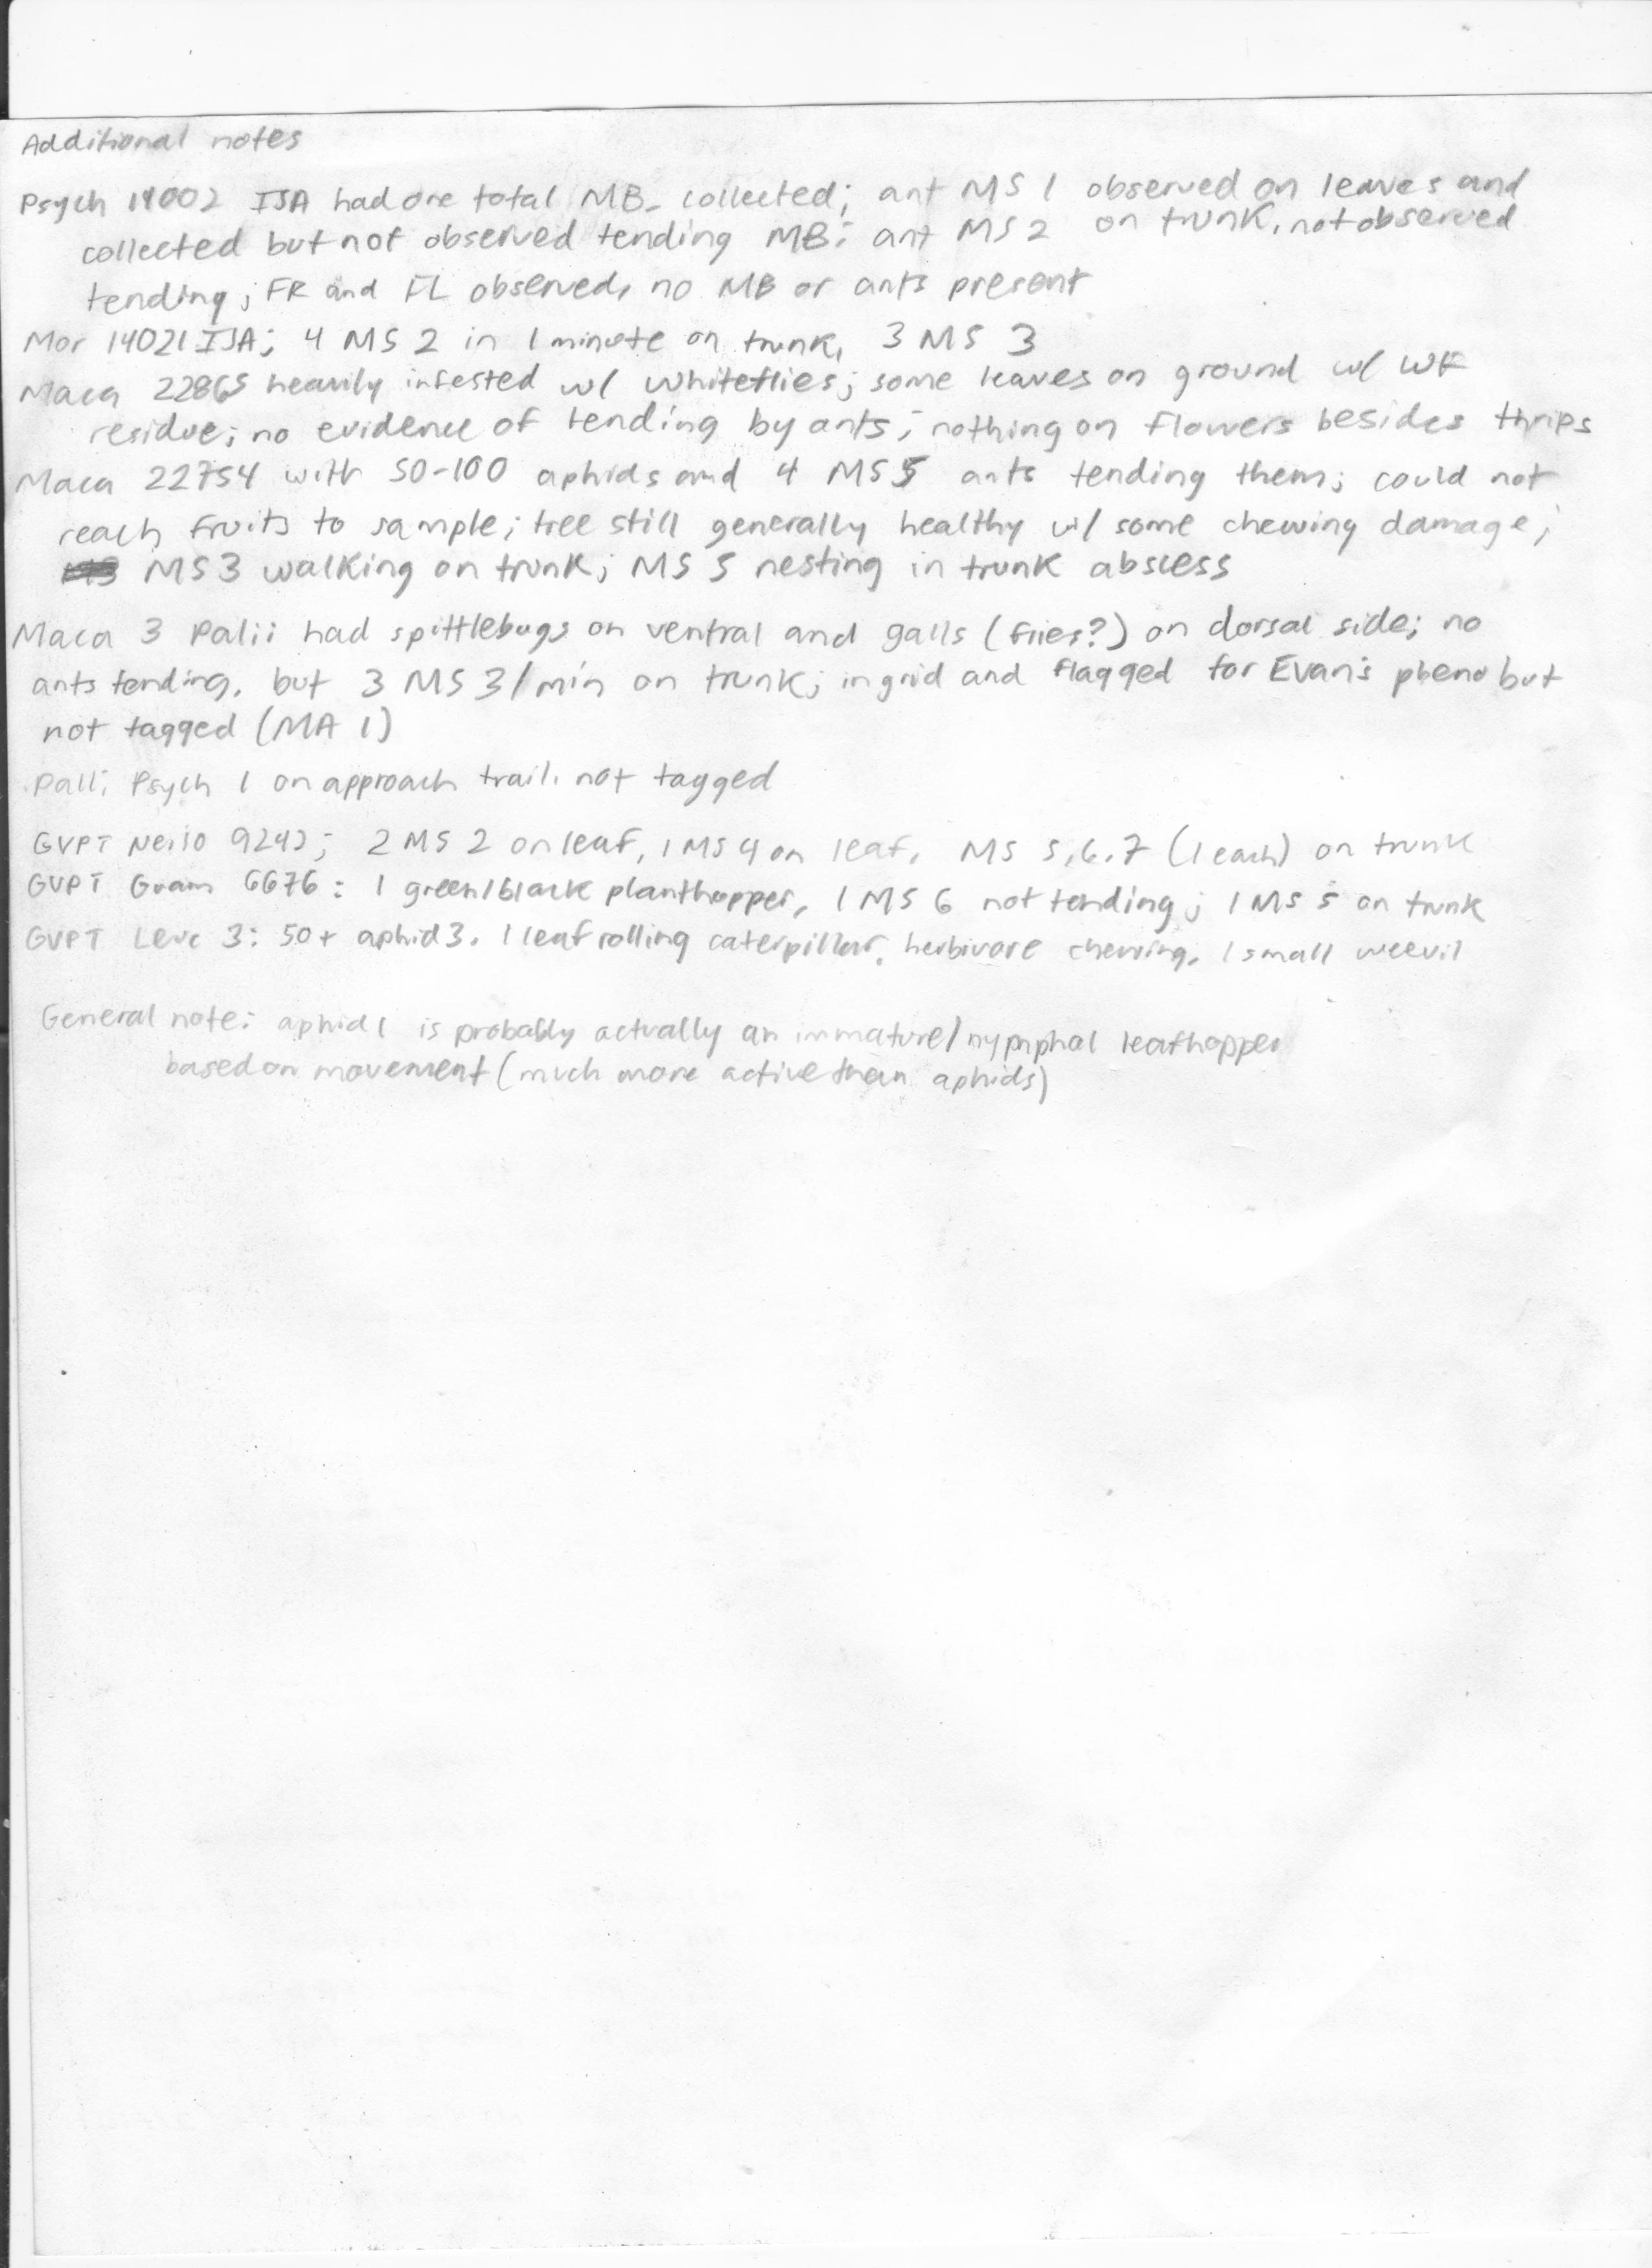 Additional notes
Psych 14002 IJA had one total MB- collected; ant MS 1 observed on leaves and
collected but not observed tending MB; ant MS 2 on trunk, not observed
tending; FR and FL observed, no MB or ants present
Mor 14021 IJA; 4 MS 2 in 1 minute on trunk, 3 MS 3
Maca 22865 heavily infested w/ whiteflies; some leaves on ground w/ WF
residue; no evidence of tending by ants; nothing on flowers besides thrips
Maca 22754 with 50-100 aphids and 4 MS 5 ants tending them; could not
reach fruits to sample; tree still generally healthy w/ some chewing damage;
MS 3 walking on trunk; MS 5 nesting in trunk abscess
Maca 3 Palii had spittlebugs on ventral and galls (flies?) on dorsal side; no
ants tending, but 3 MS 3/min on trunk; in grid and flagged for Evan's pheno but
not tagged (MA 1)
Palii Psych 1 on approach trail, not tagged
GVPT Neiso 9242; 2 MS 2 on leaf, 1 MS 4 on leaf, MS 5,6,7 (1 each) on trunk
GVPT Guam 6676: 1 green/black planthopper, 1 MS 6 not tending; 1 MS 5 on trunk
GVPT Leuc 3: 50+ aphid 3, 1 leaf rolling caterpillar, herbivore chewing, 1 small weevil
General note: aphid 1 is probably actually an immature/nymphal leafhopper
based on movement (much more active than aphids)